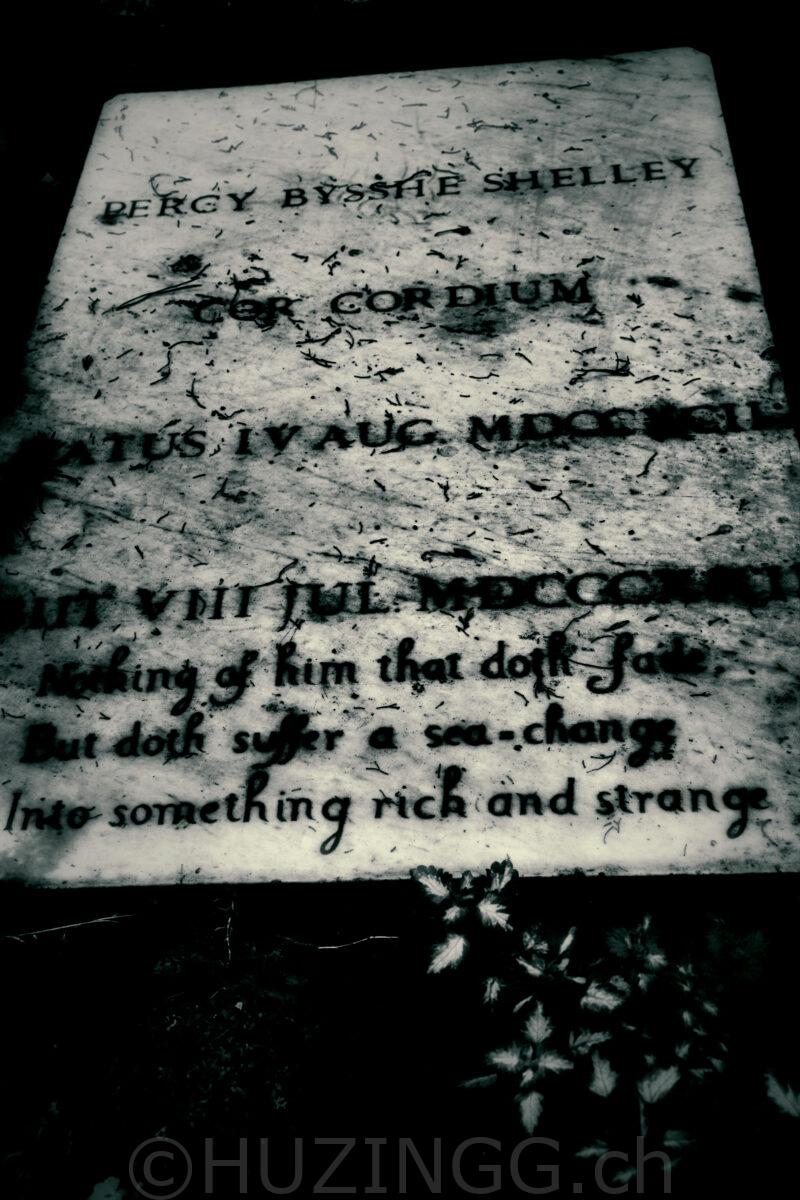 PERCY BYSSHE SHELLEY
COR CORDIUM
NATUS IV AUG. MDCCXCII
OBIIT VIII JUL. MDCCCXXII
Nothing of him that doth fade,
But doth suffer a sea-change
Into something rich and strange
©HUZINGG.ch